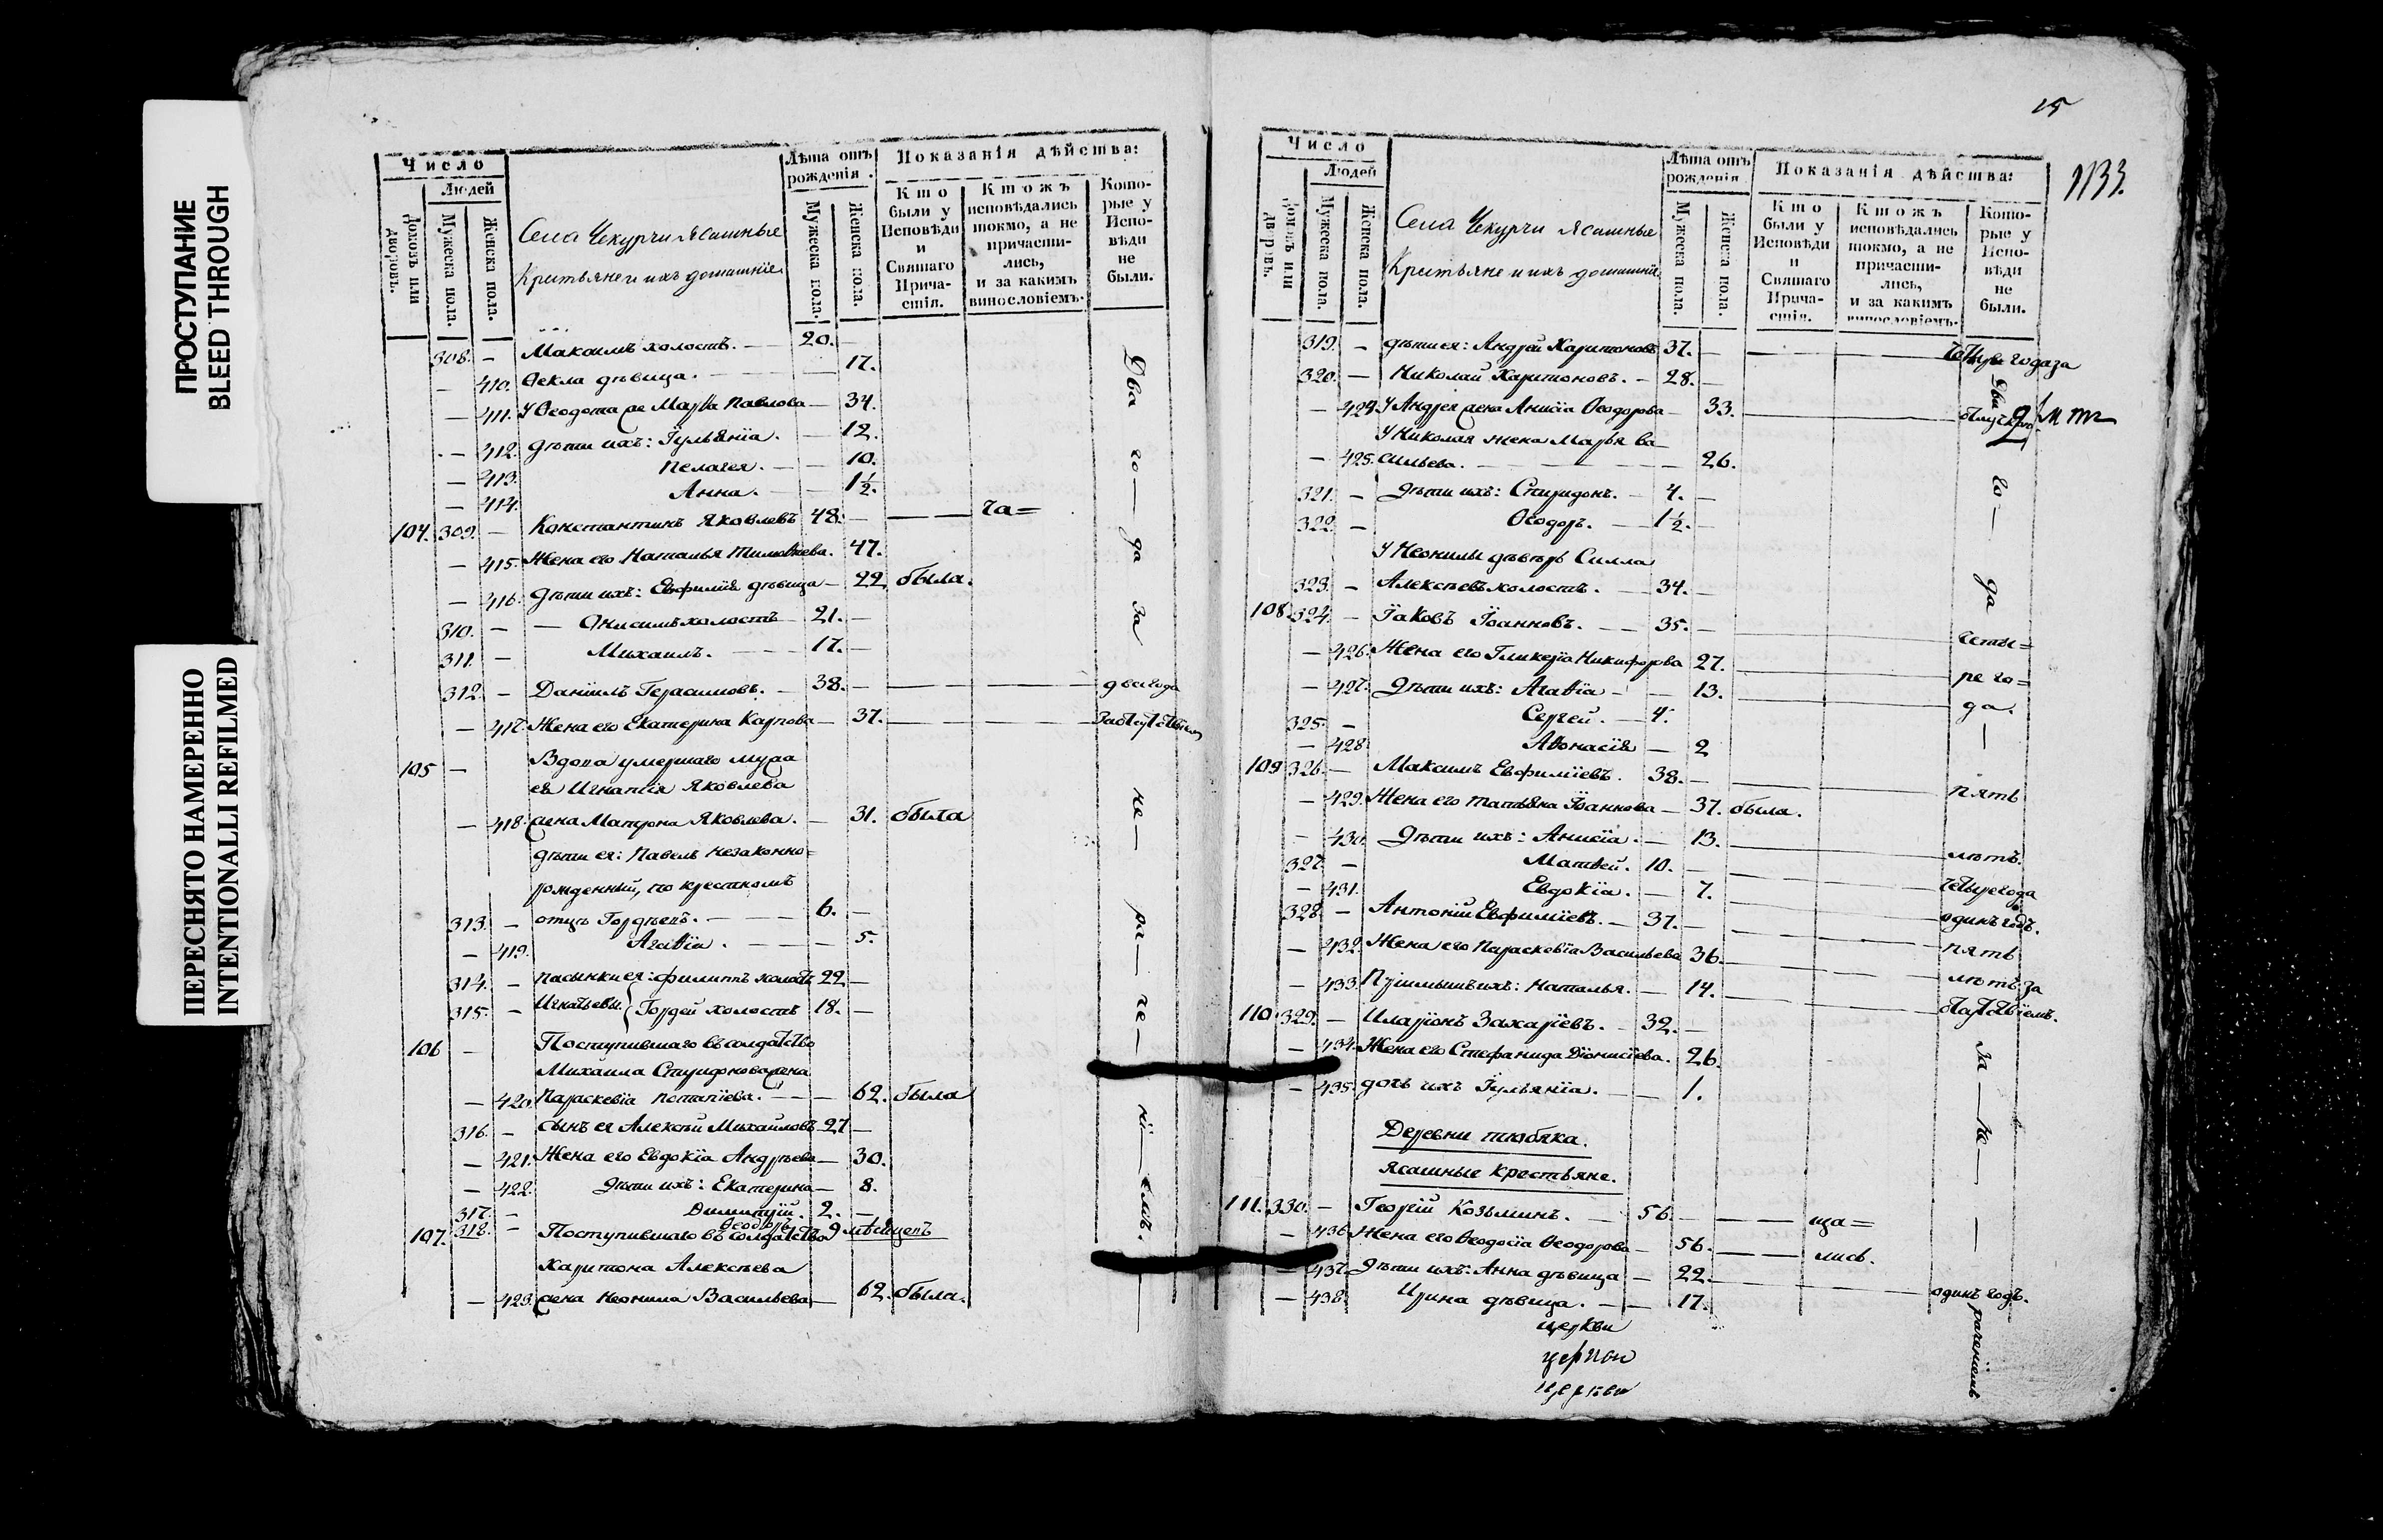 ПРОСТУПАНИЕ
BLEED THROUGH
ПЕРЕСНЯТО НАМЕРЕННО
INTENTIONALLI REFILMED
Число
Людей
Домовъ или дворовъ.
Мужеска пола.
Женска пола.
Села Чекурчи Ясашные
Крестьяне и ихъ домашніе
Лѣта отъ рожденія.
Мужеска пола.
Женска пола.
Показанія дѣйства:
Кто были у Исповѣди и Святаго Причастія.
Ктожъ исповѣдались токмо, а не причастились, и за какимъ винословіемъ.
Которые у Исповѣди не были.
308. — Максимъ холостъ. — 20. —
— 410. Ѳекла дѣвица. — 17.
— 411. У Ѳеодота Марѳа Павлова — 34.
— 412. Дѣти ихъ: Іульянія. — 12.
— 413. Пелагея. — 10.
— 414. Анна. — 1½.
104. 309. — Константинъ Яковлевъ 48. — ча=
— 415. Жена его Наталья Тимоѳеева. 47.
— 416. Дѣти ихъ: Евфимія дѣвица — 22 была.
310. — Онисимъ холостъ — 21. —
311. — Михаилъ. — 17. —
312. — Даніилъ Герасимовъ. — 38. — два года
— 417. Жена его Екатерина Карпова — 37.
105 — Вдова умершаго мужа
ея Игнатія Яковлева
— 418. жена Матрона Яковлева. — 31. была
дѣти ея: Павелъ незаконно=
рожденный, по крестномъ
313. — отцѣ Гордѣевъ. — 6. —
— 419. Агаѳія. — 5.
314. — пасынки ея: Филиппъ холостъ 22 —
315. — Игнатьевы. Гордей холостъ 18. —
106 — Поступившаго въ солдатство
Михаила Спиридонова жена
— 420. Параскевіа Потапіева. — 62. была
316. — сынъ ея Алексѣй Михайловъ 27 —
— 421. Жена его Евдокіа Андрѣева — 30.
— 422. Дѣти ихъ: Екатерина — 8.
317. — Димитрій. 2. —
318. — Ѳеодоръ 9 мѣсяцевъ
107. Поступившаго въ солдатство
Харитона Алексѣева
— 423. жена Неонила Васильева — 62. была.
Два го — да за не — ра — че — ні — емъ.
15
1133.
Число
Людей
Домовъ или дворовъ.
Мужеска пола.
Женска пола.
Села Чекурчи Ясашные
Крестьяне и ихъ домашніе
Лѣта отъ рожденія.
Мужеска пола.
Женска пола.
Показанія дѣйства:
Кто были у Исповѣди и Святаго Причастія.
Ктожъ исповѣдались токмо, а не причастились, и за какимъ винословіемъ.
Которые у Исповѣди не были.
319. — дѣти ея: Андрей Харитоновъ 37. — четыре года за
320. — Николай Харитоновъ. — 28. —
— 424. У Андрея жена Анисіа Ѳеодорова — 33.
У Николая жена Марья Ва—
— 425. сильева. — 26.
321. — Дѣти ихъ: Спиридонъ. — 4. —
322. — Ѳеодоръ. — 1½. —
У Неонилы дѣверь Силла
323. — Алексѣевъ холостъ. — 34. —
108. 324. — Іаковъ Іоанновъ. — 35. — четы=
— 426. Жена его Гликеріа Никифорова 27. ре го=
— 427. Дѣти ихъ: Агаѳіа — 13. да.
325. — Сергей. — 4.
— 428. Аѳонасія — 2
109 326. — Максимъ Евфиміевъ. 38. — пять
— 429. Жена его Татьяна Іоаннова — 37. была.
— 430. Дѣти ихъ: Анисіа. — 13. лѣтъ.
327. — Матѳей. 10. — четыре года
— 431. Евдокіа. — 7. одинъ годъ.
328. — Антоній Евфиміевъ. — 37. — пять
— 432. Жена его Параскевіа Васильева 36. лѣтъ за
— 433. Пріимышъ ихъ: Наталья. — 14.
110. 329. — Иларіонъ Захаріевъ. — 32. —
— 434. Жена его Стефанида Діонисіева. 26.
— 435. дочь ихъ Іульяніа. — 1.
Деревни Тюбяка.
Ясашные крестьяне.
111. 330. — Георгій Козьминъ. — 56. — ща=
— 436. Жена его Ѳеодосіа Ѳеодорова — 56. лись.
— 437. Дѣти ихъ: Анна дѣвица — 22.
— 438. Ирина дѣвица. — 17. одинъ годъ.
Два го — да за — не — раченіемъ
церкви
церкви
церкви